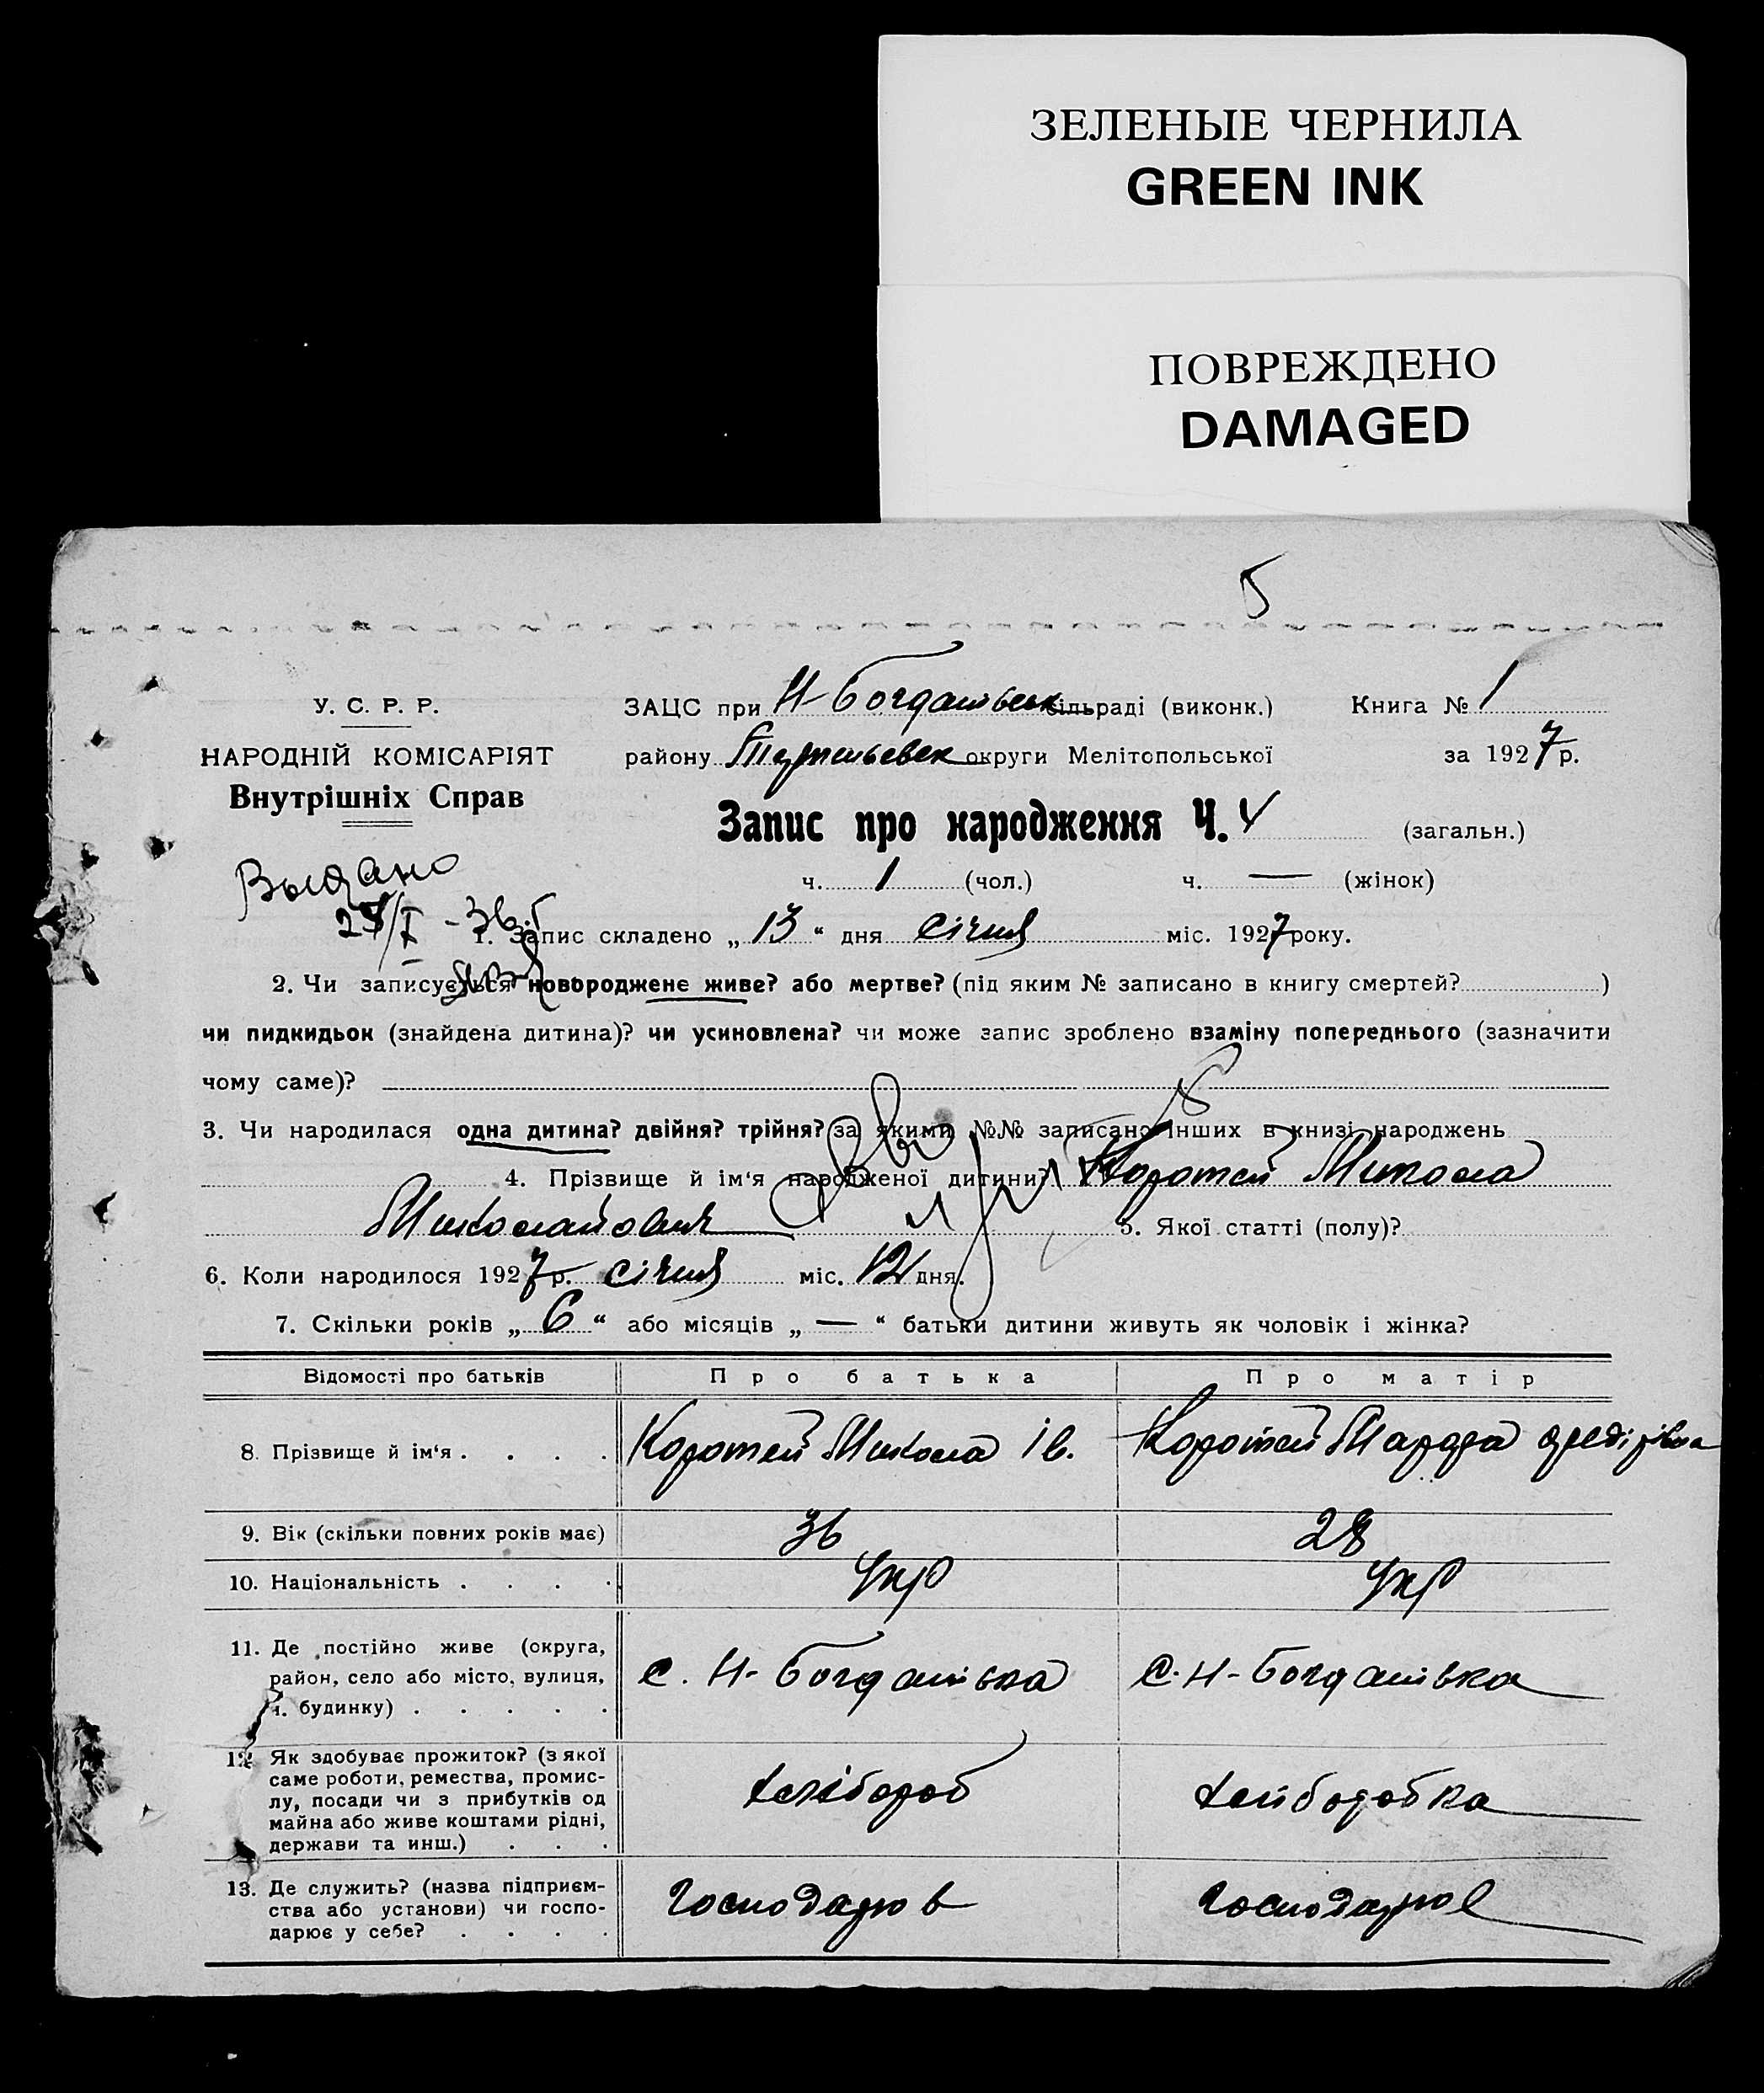 ЗЕЛЕНЫЕ ЧЕРНИЛА
GREEN INK
ПОВРЕЖДЕНО
DAMAGED
5
У. С. Р. Р.
НАРОДНІЙ КОМІСАРІЯТ
Внутрішніх Справ
ЗАЦС при Н-Богданівськ сільраді (виконк.) Книга № 1
району округи Мелітопольської за 1927 р.
Запис про народження Ч. 4 (загальн.)
ч. 1 (чол.) ч. — (жінок)
Выдано
27/I - 36 г
1. Запис складено „13“ дня січня міс. 1927 року.
2. Чи записується новороджене живе? або мертве? (під яким № записано в книгу смертей? )
чи пидкидьок (знайдена дитина)? чи усиновлена? чи може запис зроблено взаміну попереднього (зазначити
чому саме)?
3. Чи народилася одна дитина? двійня? трійня? за якими №№ записано інших в книзі народжень
4. Прізвище й ім‘я народженої дитини? Коротей Микола
Миколайович 5. Якої статті (полу)?
6. Коли народилося 1927 р. січня міс. 12 дня.
7. Скільки років „6“ або місяців „—“ батьки дитини живуть як чоловік і жінка?
Відомості про батьків Про батька Про матір
8. Прізвище й ім‘я . . . . Коротей Микола Ів. Коротей
9. Вік (скільки повних років має) 36 28
10. Національність . . . . Укр Укр
11. Де постійно живе (округа,
район, село або місто, вулиця,
ч. будинку) . . . . . с. Н-Богданівка с. Н-Богданівка
12. Як здобуває прожиток? (з якої
саме роботи, ремества, промис-
лу, посади чи з прибутків од
майна або живе коштами рідні,
держави та инш.) . . . хлібороб хліборобка
13. Де служить? (назва підприєм-
ства або установи) чи госпо-
дарює у себе? . . . . Господарює Господарює